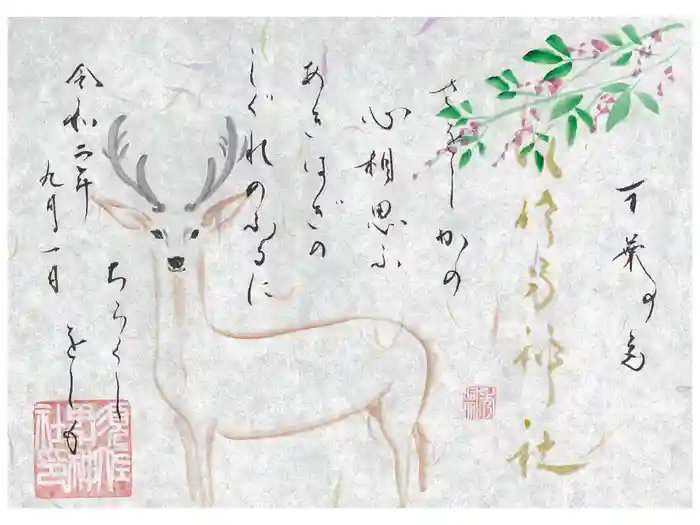 万葉の
須佐男神社
さをしかの
心相思ふ
あきはぎの
しぐれのふるに
ちらくし
をしも
令和二年
九月一日
須佐男神社印